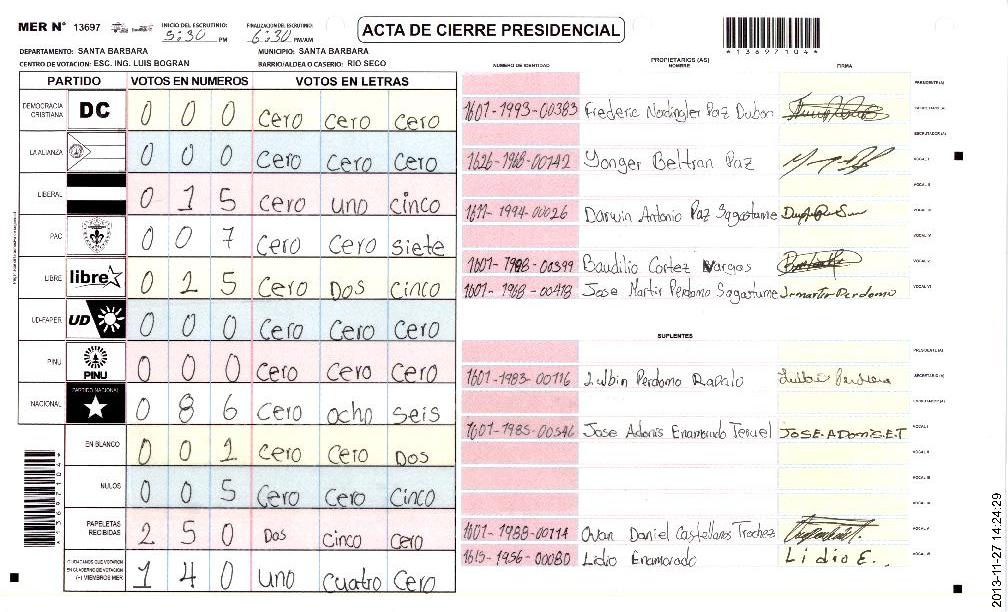 MER N° 13697 INICIO DEL ESCRUTINIO: 5:30 PM FINALIZACION DEL ESCRUTINIO: 6:30 PM/AM
ACTA DE CIERRE PRESIDENCIAL
*13697104*
DEPARTAMENTO: SANTA BARBARA MUNICIPIO: SANTA BARBARA
CENTRO DE VOTACION: ESC. ING. LUIS BOGRAN BARRIO/ALDEA O CASERIO: RIO SECO
PARTIDO VOTOS EN NUMEROS VOTOS EN LETRAS
DEMOCRACIA CRISTIANA DC 0 0 0 Cero Cero Cero
LA ALIANZA 0 0 0 Cero Cero Cero
LIBERAL 0 1 5 Cero uno cinco
PAC 0 0 7 Cero Cero siete
LIBRE libre 0 2 5 Cero Dos Cinco
UD-FAPER UD 0 0 0 Cero Cero Cero
PINU PINU 0 0 0 Cero Cero Cero
NACIONAL PARTIDO NACIONAL 0 8 6 Cero ocho seis
EN BLANCO 0 0 2 Cero Cero Dos
NULOS 0 0 5 Cero Cero Cinco
PAPELETAS RECIBIDAS 2 5 0 Dos cinco cero
CIUDADANOS QUE VOTARON EN CUADERNO DE VOTACION (+) MIEMBROS MER 1 4 0 uno cuatro Cero
PROPIETARIOS (AS)
NUMERO DE IDENTIDAD NOMBRE FIRMA
PRESIDENTE (A)
1601-1993-00383 Frederic Nordingler Paz Dubon SECRETARIO (A)
ESCRUTADOR (A)
1626-1968-00142 Yonger Beltran Paz VOCAL I
VOCAL II
1611-1994-00026 Darwin Antonio Paz Sagastume VOCAL III
VOCAL IV
1601-1988-00399 Baudilio Cortez Vargas VOCAL V
1601-1968-00418 Jose Martir Perdomo Sagastume Jrmartir Perdomo VOCAL VI
SUPLENTES
PRESIDENTE (A)
1601-1983-00116 Lulbin Perdomo SECRETARIO (A)
ESCRUTADOR (A)
1601-1985-00546 Jose Adonis Enamorado Teruel JOSE.ADONIS.E.T VOCAL I
VOCAL II
VOCAL III
VOCAL IV
1601-1988-00114 Daniel Castellanos Trochez VOCAL V
1615-1956-00080 Lidio Enamorado Lidio E. VOCAL VI
*13697104*
2013-11-27 14:24:29